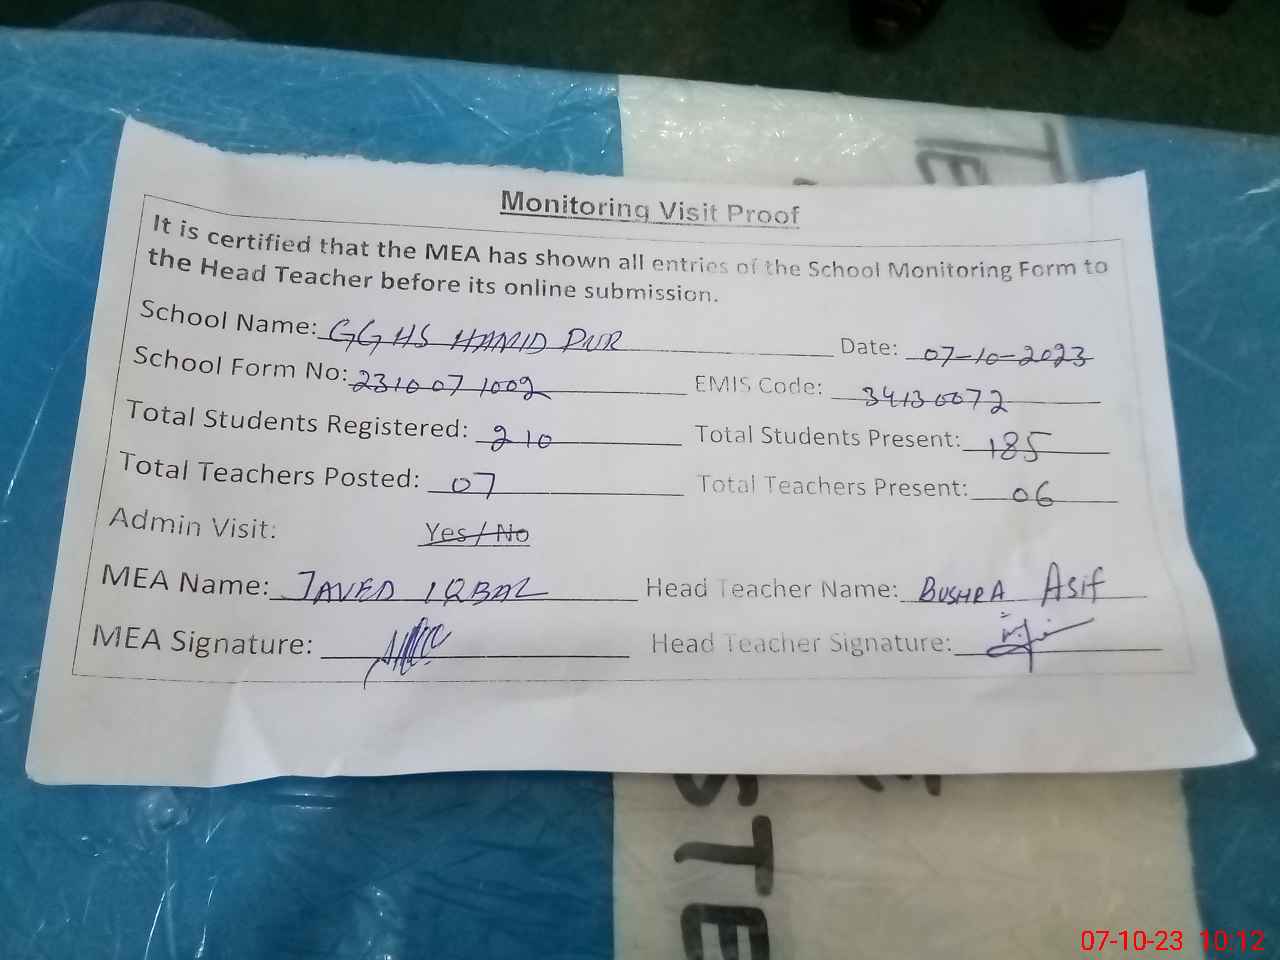 Monitoring Visit Proof
It is certified that the MEA has shown all entries of the School Monitoring Form to
the Head Teacher before its online submission.
School Name: GGHS HAMID PUR Date: 07-10-2023
School Form No: 2310071002 EMIS Code: 34130072
Total Students Registered: 210 Total Students Present: 185
Total Teachers Posted: 07 Total Teachers Present: 06
Admin Visit: Yes / No
MEA Name: JAVED IQBAL Head Teacher Name: BUSHRA Asif
MEA Signature: Head Teacher Signature:
STE
07-10-23 10:12